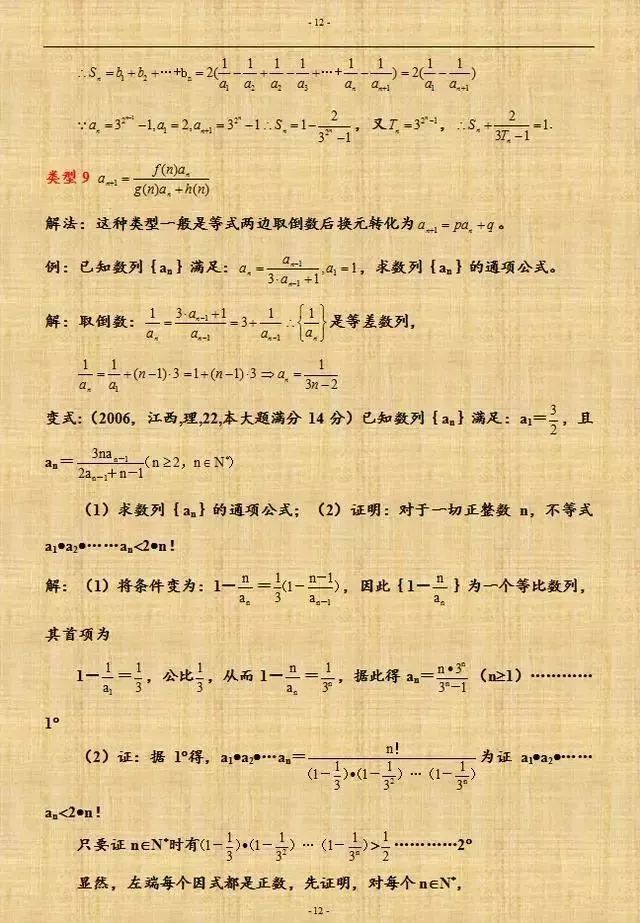 - 12 -
∴S_n = b_1 + b_2 + ⋯ + b_n = 2(1/a_1 − 1/a_2 + 1/a_2 − 1/a_3 + ⋯ + 1/a_n − 1/a_{n+1}) = 2(1/a_1 − 1/a_{n+1})
∵a_n = 3^{2^{n−1}} − 1, a_1 = 2, a_{n+1} = 3^{2^n} − 1 ∴S_n = 1 − 2/(3^{2^n} − 1), 又T_n = 3^{2^n−1}, ∴S_n + 2/(3T_n − 1) = 1.
类型 9 a_{n+1} = f(n)a_n/(g(n)a_n + h(n))
解法：这种类型一般是等式两边取倒数后换元转化为 a_{n+1} = pa_n + q 。
例：已知数列｛a_n｝满足：a_n = a_{n−1}/(3·a_{n−1} + 1), a_1 = 1，求数列｛a_n｝的通项公式。
解：取倒数：1/a_n = (3·a_{n−1} + 1)/a_{n−1} = 3 + 1/a_{n−1} ∴{1/a_n}是等差数列，
1/a_n = 1/a_1 + (n−1)·3 = 1 + (n−1)·3 ⇒ a_n = 1/(3n−2)
变式:（2006，江西,理,22,本大题满分 14 分）已知数列｛a_n｝满足：a_1＝3/2，且
a_n＝3na_{n−1}/(2a_{n−1}＋n−1)(n ≥ 2，n∈N*)
（1）求数列｛a_n｝的通项公式；（2）证明：对于一切正整数 n，不等式
a_1•a_2•……a_n<2•n！
解：（1）将条件变为：1－n/a_n＝1/3(1−(n−1)/a_{n−1})，因此｛1－n/a_n｝为一个等比数列，
其首项为
1－1/a_1＝1/3，公比1/3，从而 1－n/a_n＝1/3^n，据此得 a_n＝n•3^n/(3^n−1)（n≥1）…………
1°
（2）证：据 1°得，a_1•a_2•…a_n＝n！/((1−1/3)•(1−1/3^2) … (1−1/3^n))为证 a_1•a_2•……
a_n<2•n！
只要证 n∈N*时有(1−1/3)•(1−1/3^2) … (1−1/3^n)>1/2…………2°
显然，左端每个因式都是正数，先证明，对每个 n∈N*，
- 12 -